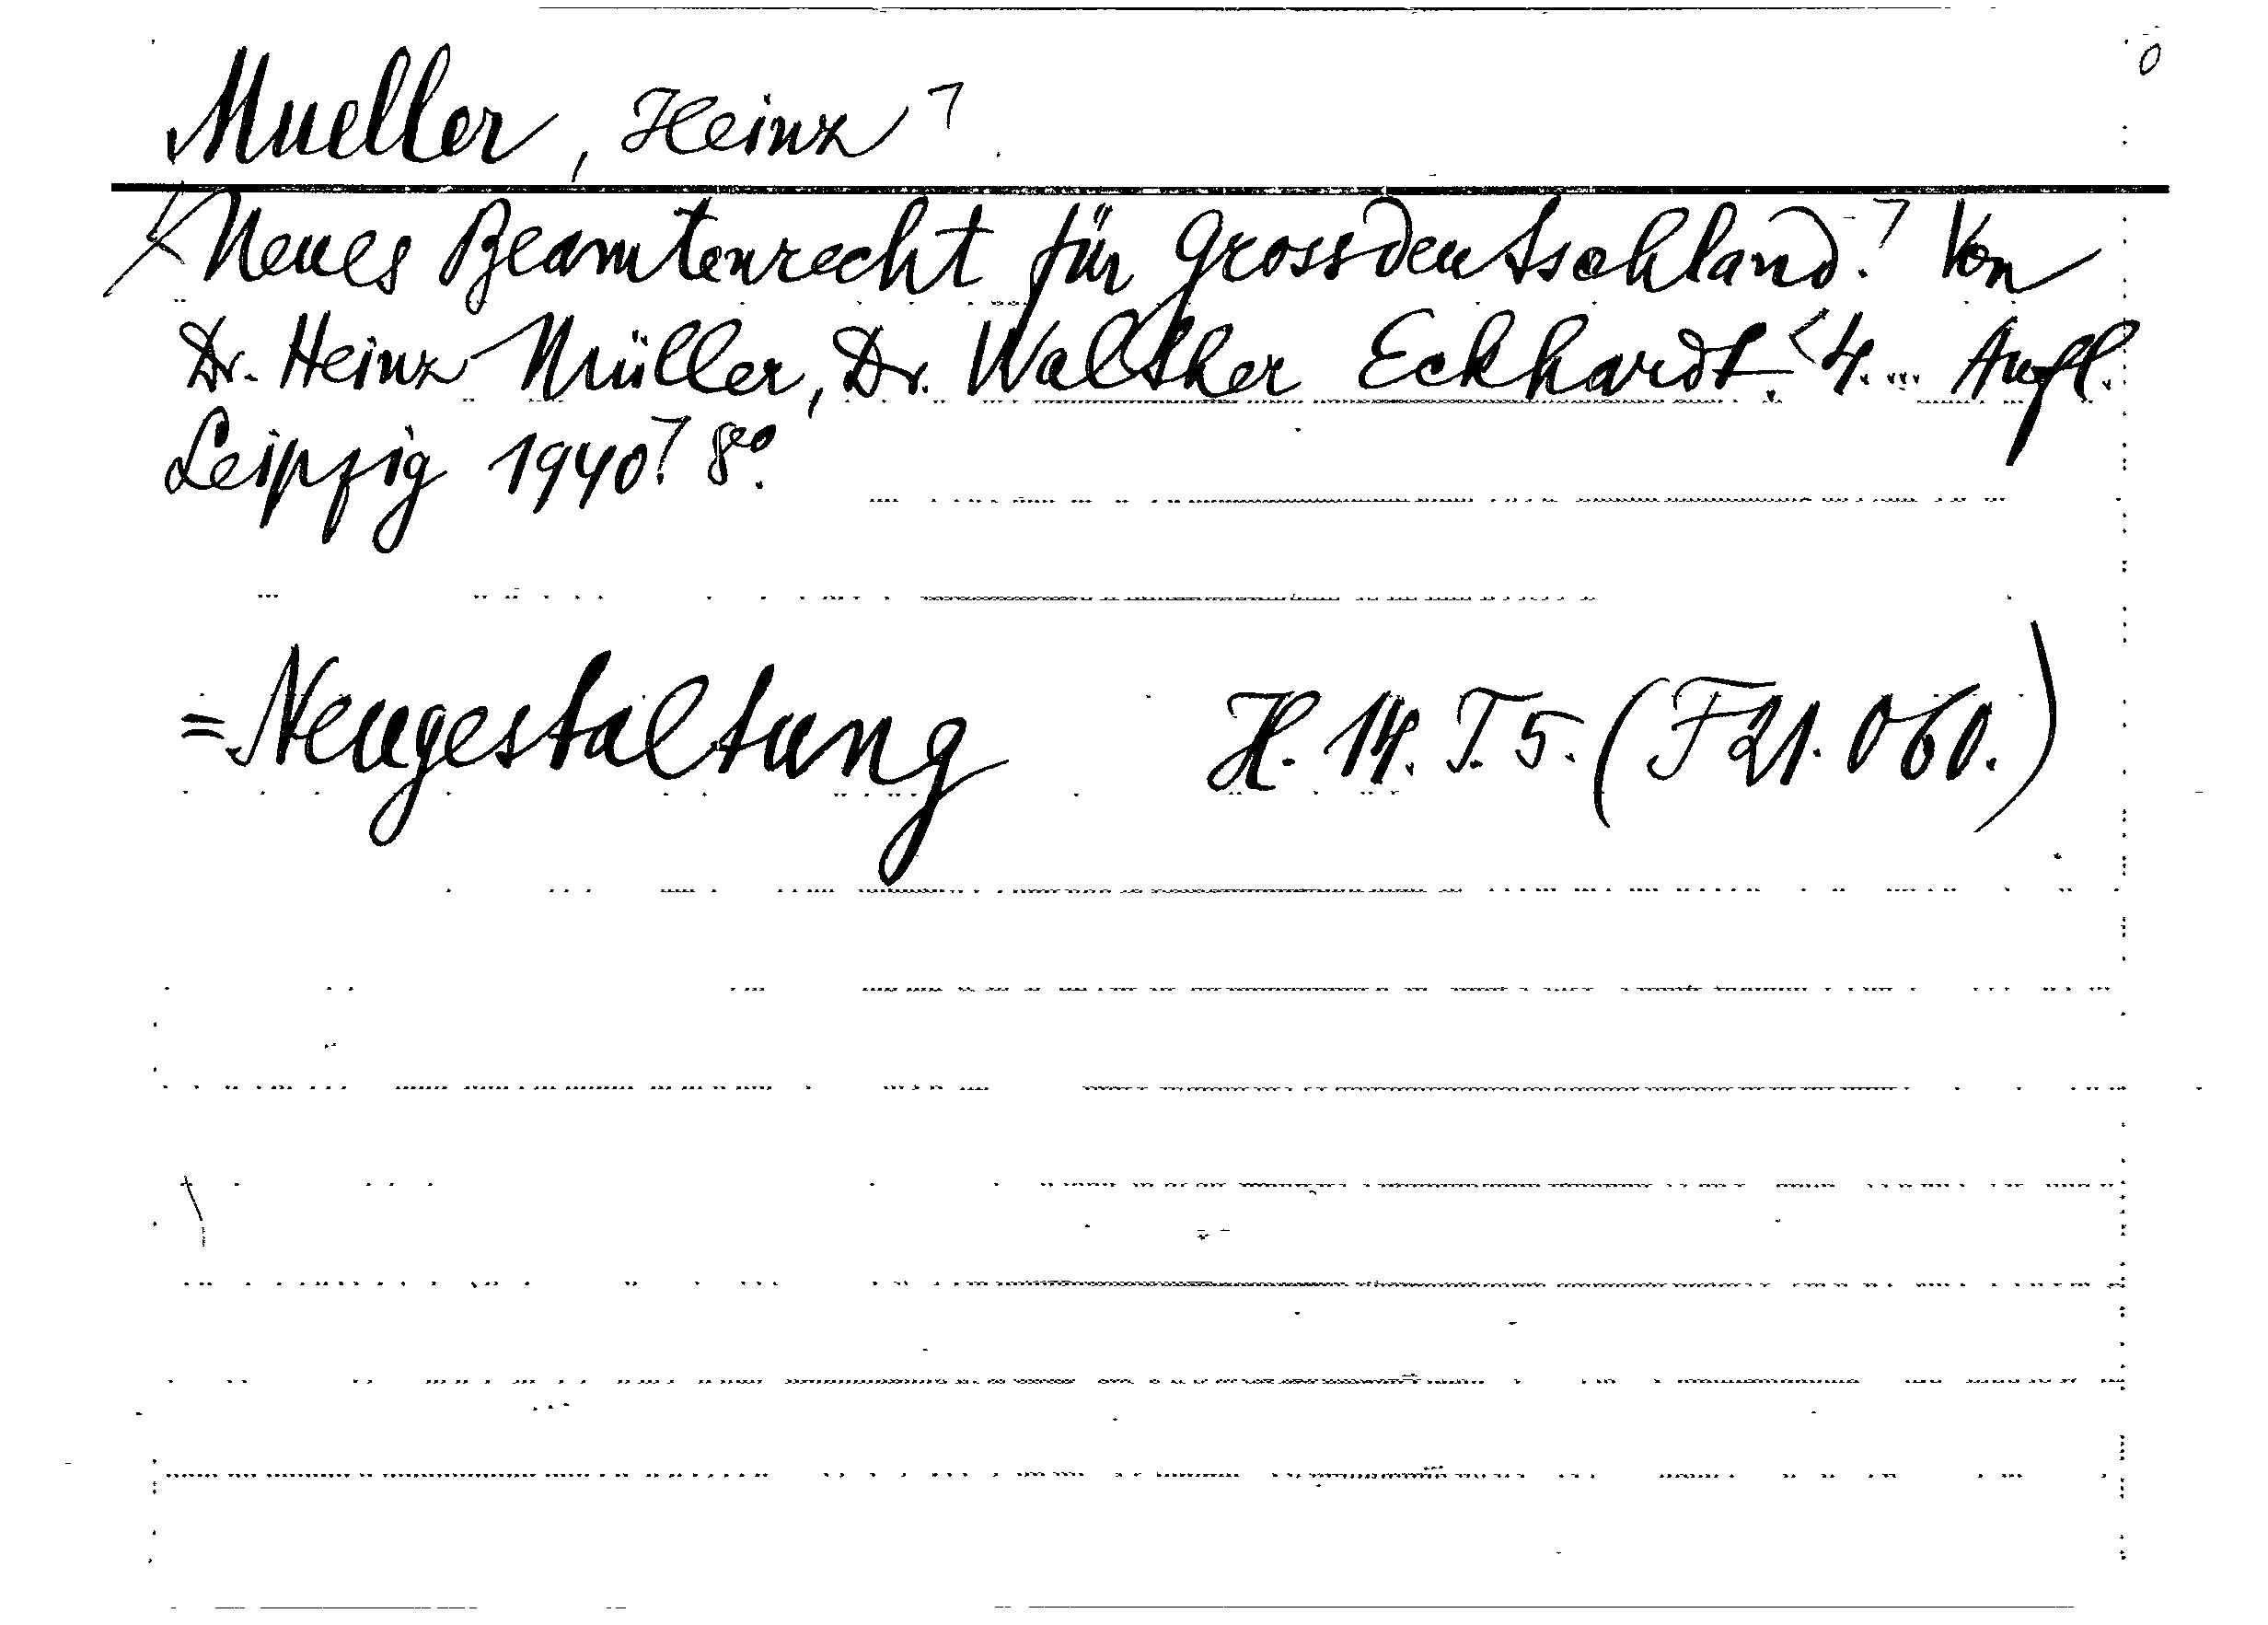 Mueller, Heinz
Neues Beamtenrecht für Grossdeutschland. Von
Dr. Heinz Müller, Dr. Walther Eckhardt. <4. ... Aufl.
Leipzig 1940. 8°.
= Neugestaltung H. 14. T. 5. (F 21. 060.)